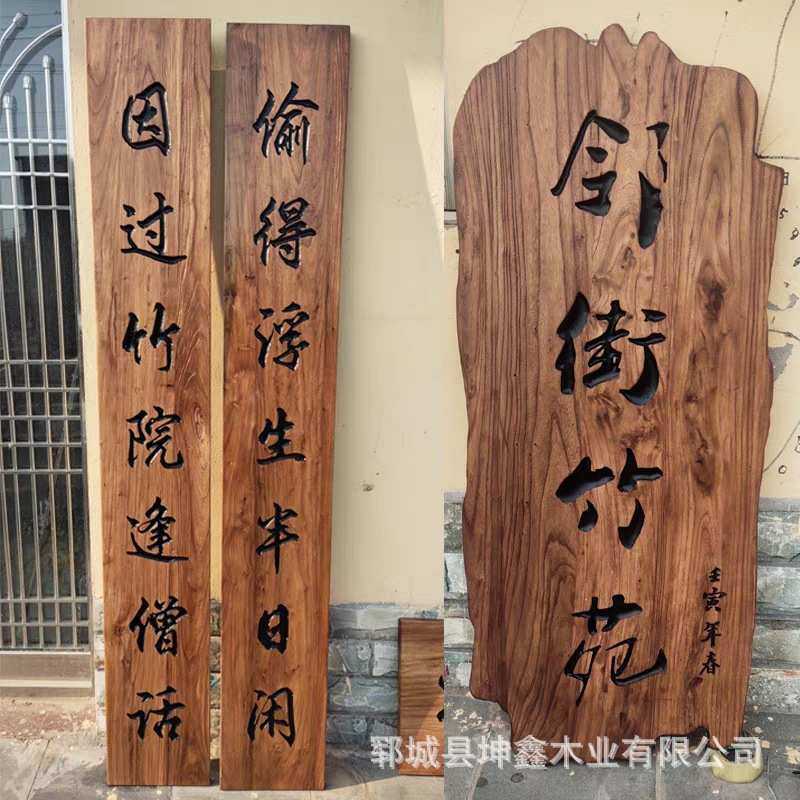 因过竹院逢僧话
偷得浮生半日闲
邻街竹苑
壬寅年春
郓城县坤鑫木业有限公司